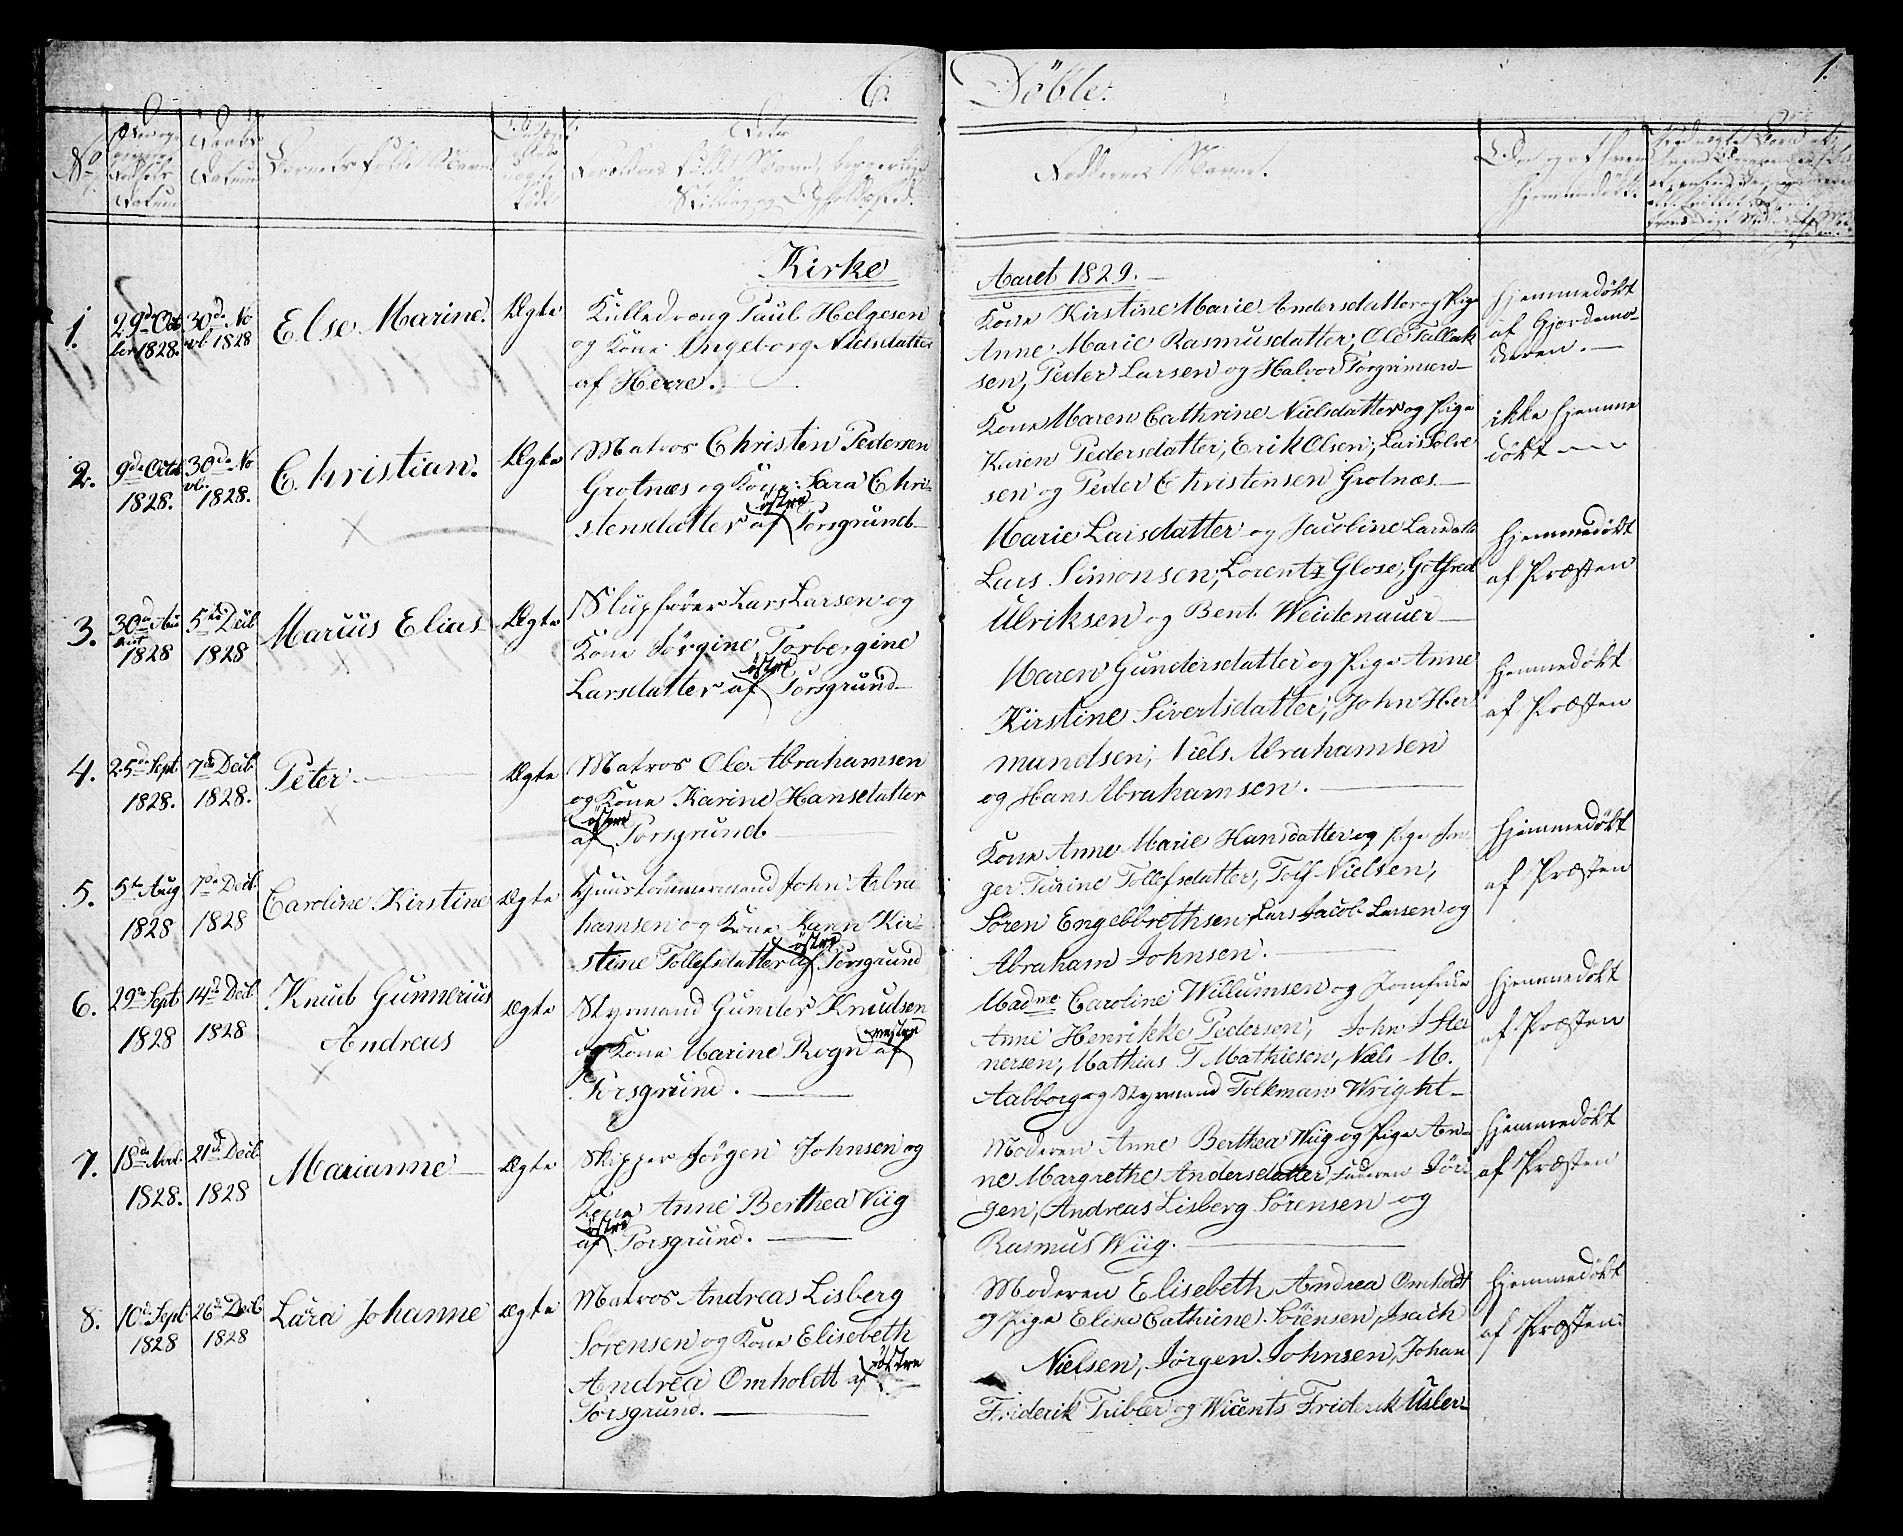 C. Döbte.
1.
No
Barnets fulde Navn
Faddernes Navne.
Kirke
Aaret 1829.
1.
29de Octo
ber 1828.
30de No
vb. 1828
Else Marine.
Ægte
Kulledreng Paul Helgesen
og Kone Ingeborg Nielsdatter
af Herre.
Kone Kirstine Marie Andersdatter og Pige
Anne Marie Rasmusdatter, Ole Tallak
sen, Peder Larsen og Halvor Torgrimsen
hjemmedøbt
af Gjordemo-
deren.
2.
9de Octb
1828.
30de No
vb. 1828.
Christian.
Ægte
Matros Christen Pedersen
Grotnæs og Kone: Sara Chri-
stensdatter af östre Porsgrund
Kone Maren Cathrine Nielsdatter og Pige
Karen Pedersdatter, Erik Olsen, Lars Solve
sen og Peder Christensen Grotnæs
ikke hjemme
døbt
3.
30d Au
gust
1828
5te Decb
1828
Marius Elias
Ægte
Slupfører Lars Larsen og
Kone Jörgine Torbergine
Larsdatter af östre Porsgrund
Marie Larsdatter og Jacoline Larsdatt
Lars Simonsen, Lorentz Glose, Gotfred
Ulriksen og Bent Weidenauer
hjemmedøbt
af Præsten
4.
25de Sept
1828.
7de Decb.
1828.
Peter
Ægte
Matros Ole Abrahamsen
og Kone Karine Hansdatter
af östre Porsgrund
Maren Gundersdatter og Pige Anne
Kirstine Sivertsdatter, John Her
mundsen, Niels Abrahamsen
og Hans Abrahamsen.
hjemmedøbt
af Præsten
5.
5te Aug
1828
7de Decb.
1828
Caroline Kirstine
Ægte
Huustömmermand John Abra
hamsen og Kone Karen Kir-
stine Tollefsdatter af östre Porsgrund
Kone Anne Marie Hansdatter og Pige In
ger Turine Tollefsdatter, Tolf Nielsen,
Sören Engelbrethsen, Lars Jacob Larsen og
Abraham Johnsen.
hjemmedøbt
af Præsten
6.
29de Sept
1828
14de Decb
1828
Knud Gunnerius
Andreas
Ægte
Styrmand Gunder Knudsen
og Kone Marine Rogn af vestre
Porsgrund.
Madme Caroline Willumsen og Jomfrue
Anne Henrikke Pedersen, John I Ste
nersen, Mathias T Mathiesen, Niels M.
Aalborg og Styrmand Folkman Wright
hjemmedøbt
af Præsten
7.
18de Novb.
1828.
21de Decb.
1828
Marianne
Ægte
Skipper Jörgen Johnsen og
Kone Anne Berthea Viig
af östre Porsgrund.
Moderen Anne Berthea Wiig og Pige An-
ne Margrethe Andersdatter, Faderen Jör
gen, Andreas Lisberg Sörensen og
Rasmus Wiig.
hjemmedøbt
af Præsten
8.
10de Sept
1828
26de Decb
1828
Lara Johanne
Ægte
Matros Andreas Lisberg
Sörensen og Kone Elisebeth
Andrea Omholdt af östre
Porsgrund.
Moderen Elisebeth Andrea Omholdt
og Pige Elise Cathrine Sörensen, Isach
Nielsen, Jörgen Johnsen, Johan
Friderik Tribler og Wicents Friderik Usler
hjemmedøbt
af Præsten.